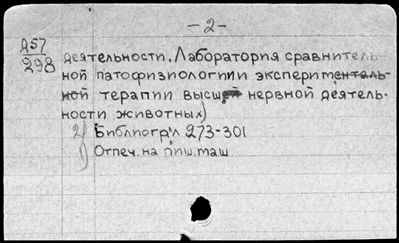 -2-
Д57
298
деятельности. Лаборатория сравнитель-
ной патофизиологии эксперименталь-
ной терапии высшей нервной деятель-
ности животных)
2) Библиогр: л 273-301
1) Отпеч. на пиш. маш